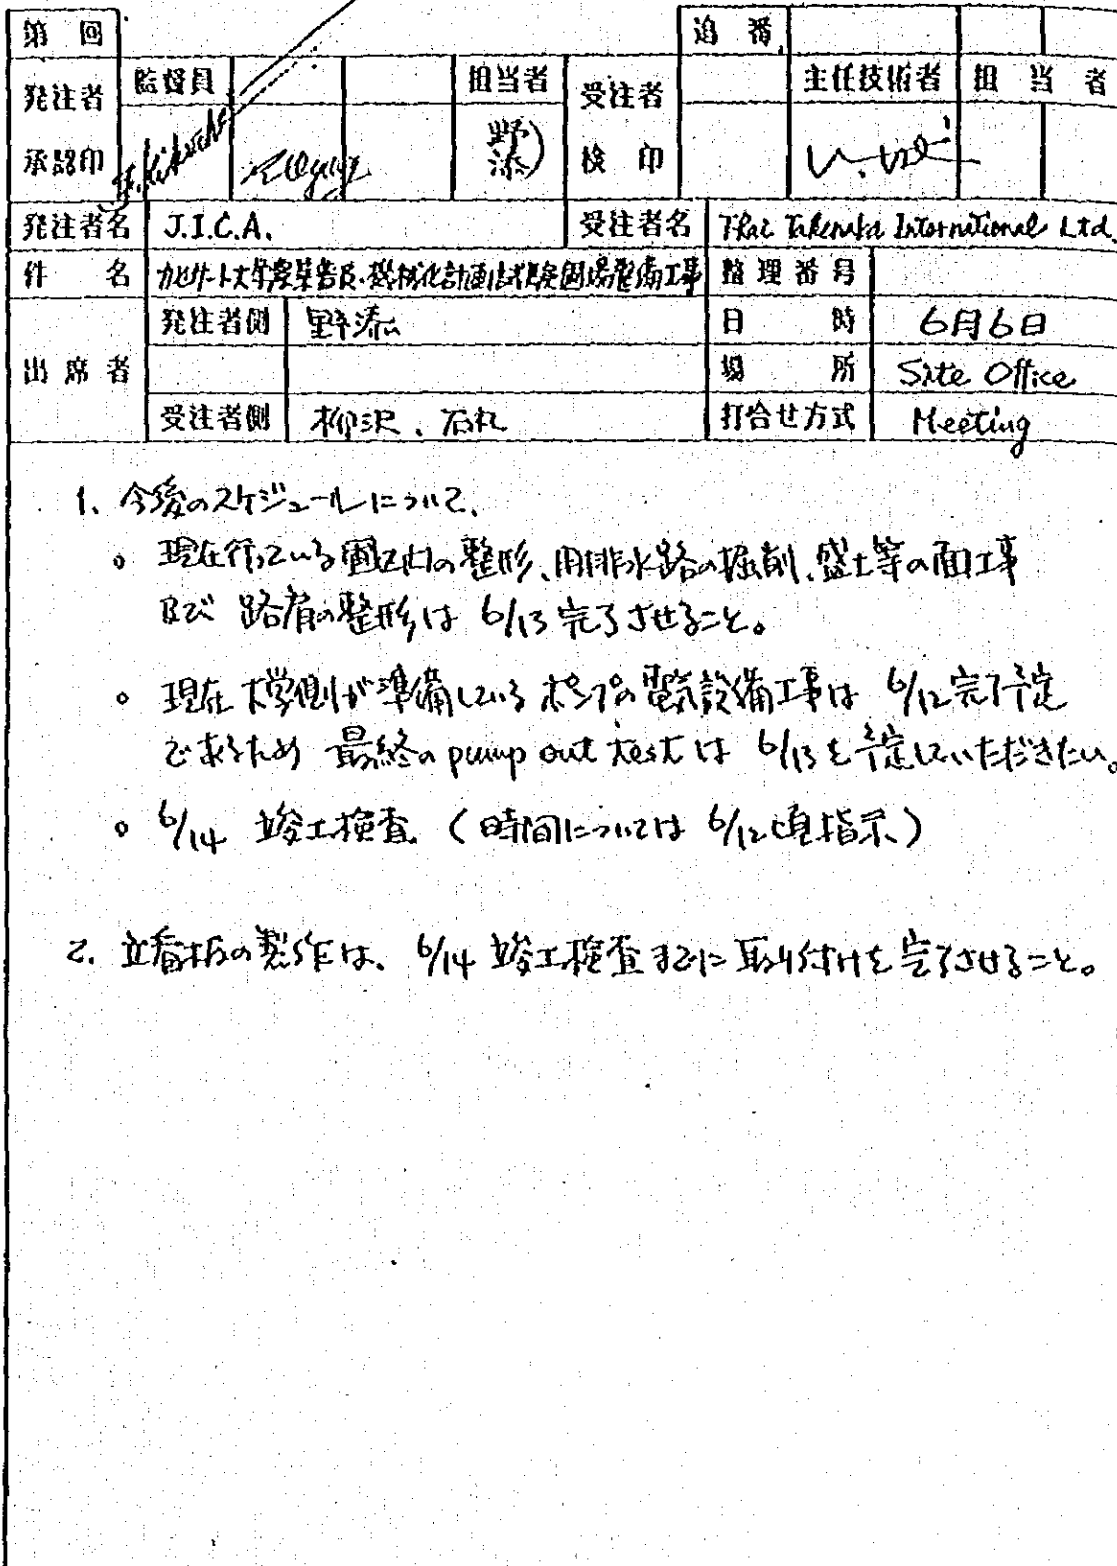 第 回
追 番
発注者
承認印
監督員
担当者
野添
受注者
検 印
主任技術者
担 当 者
発注者名 J.I.C.A.
受注者名 Thai Takenaka International Ltd.
件 名 カセサート大学農業普及・機械化計画試験圃場整備工事
整理番号
出席者
発注者側 野添
日 時 6月6日
場 所 Site Office
受注者側 柳沢、石丸
打合せ方式 Meeting
1. 今後のスケジュールについて、
○ 現在行っている圃区内の整形、用排水路の掘削、盛土等の面工事
及び 路肩の整形は 6/13 完了させること。
○ 現在 大学側が準備している ポンプの電気設備工事は 6/12 完了予定
であるため 最終の pump out test は 6/13 を予定していただきたい。
○ 6/14 竣工検査 (時間については 6/12頃指示)
2. 立看板の製作は、6/14 竣工検査までに 取り付けを完了させること。